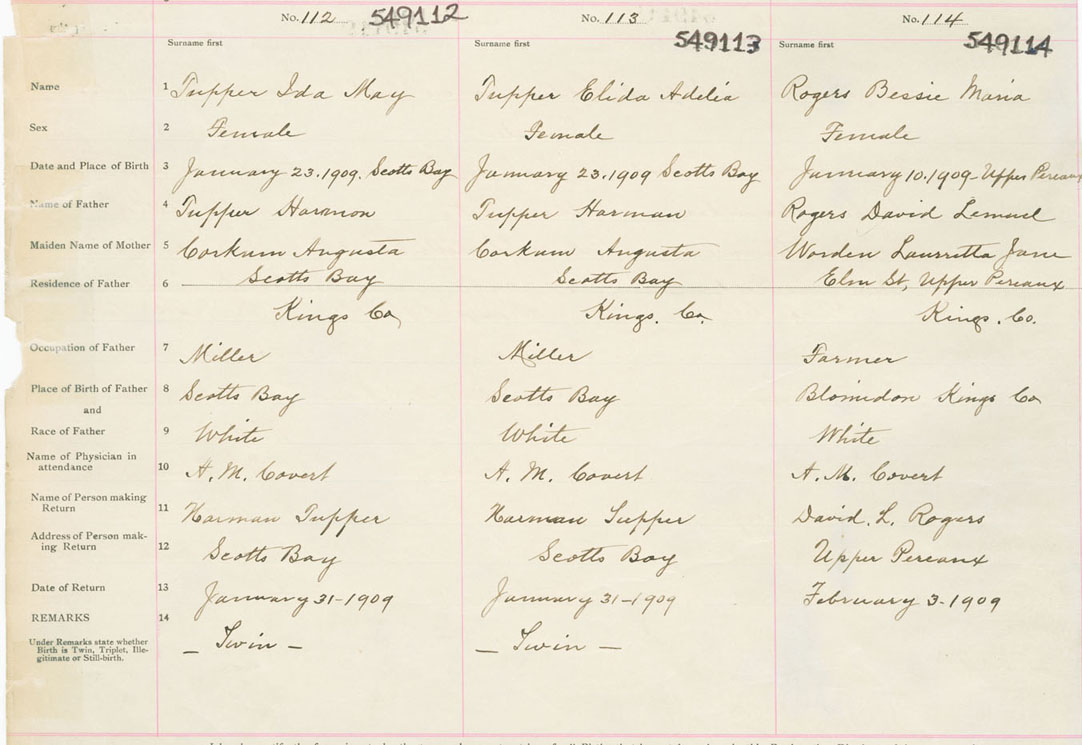 No. 112 549112 No. 113 549113 No. 114 549114
Surname first Surname first Surname first
Name 1 Tupper Ida May Tupper Elida Adelia Rogers Bessie Maria
Sex 2 Female Female Female
Date and Place of Birth 3 January 23.1909. Scotts Bay January 23.1909 Scotts Bay January 10.1909 - Upper Pereaux
Name of Father 4 Tupper Harmon Tupper Harman Rogers David Lemuel
Maiden Name of Mother 5 Corkum Augusta Corkum Augusta Worden Laurretta Jane
Residence of Father 6 Scotts Bay Scotts Bay Elm St, Upper Pereaux
Kings Co Kings. Co. Kings. Co.
Occupation of Father 7 Miller Miller Farmer
Place of Birth of Father 8 Scotts Bay Scotts Bay Blomidon Kings Co
and
Race of Father 9 White White White
Name of Physician in
attendance 10 A. M. Covert A. M. Covert A. M. Covert
Name of Person making
Return 11 Harman Tupper Harman Tupper David. L. Rogers
Address of Person mak-
ing Return 12 Scotts Bay Scotts Bay Upper Pereaux
Date of Return 13 January 31-1909 January 31-1909 February 3-1909
REMARKS 14
Under Remarks state whether
Birth is Twin, Triplet, Ille-
gitimate or Still-birth. – Twin – – Twin –